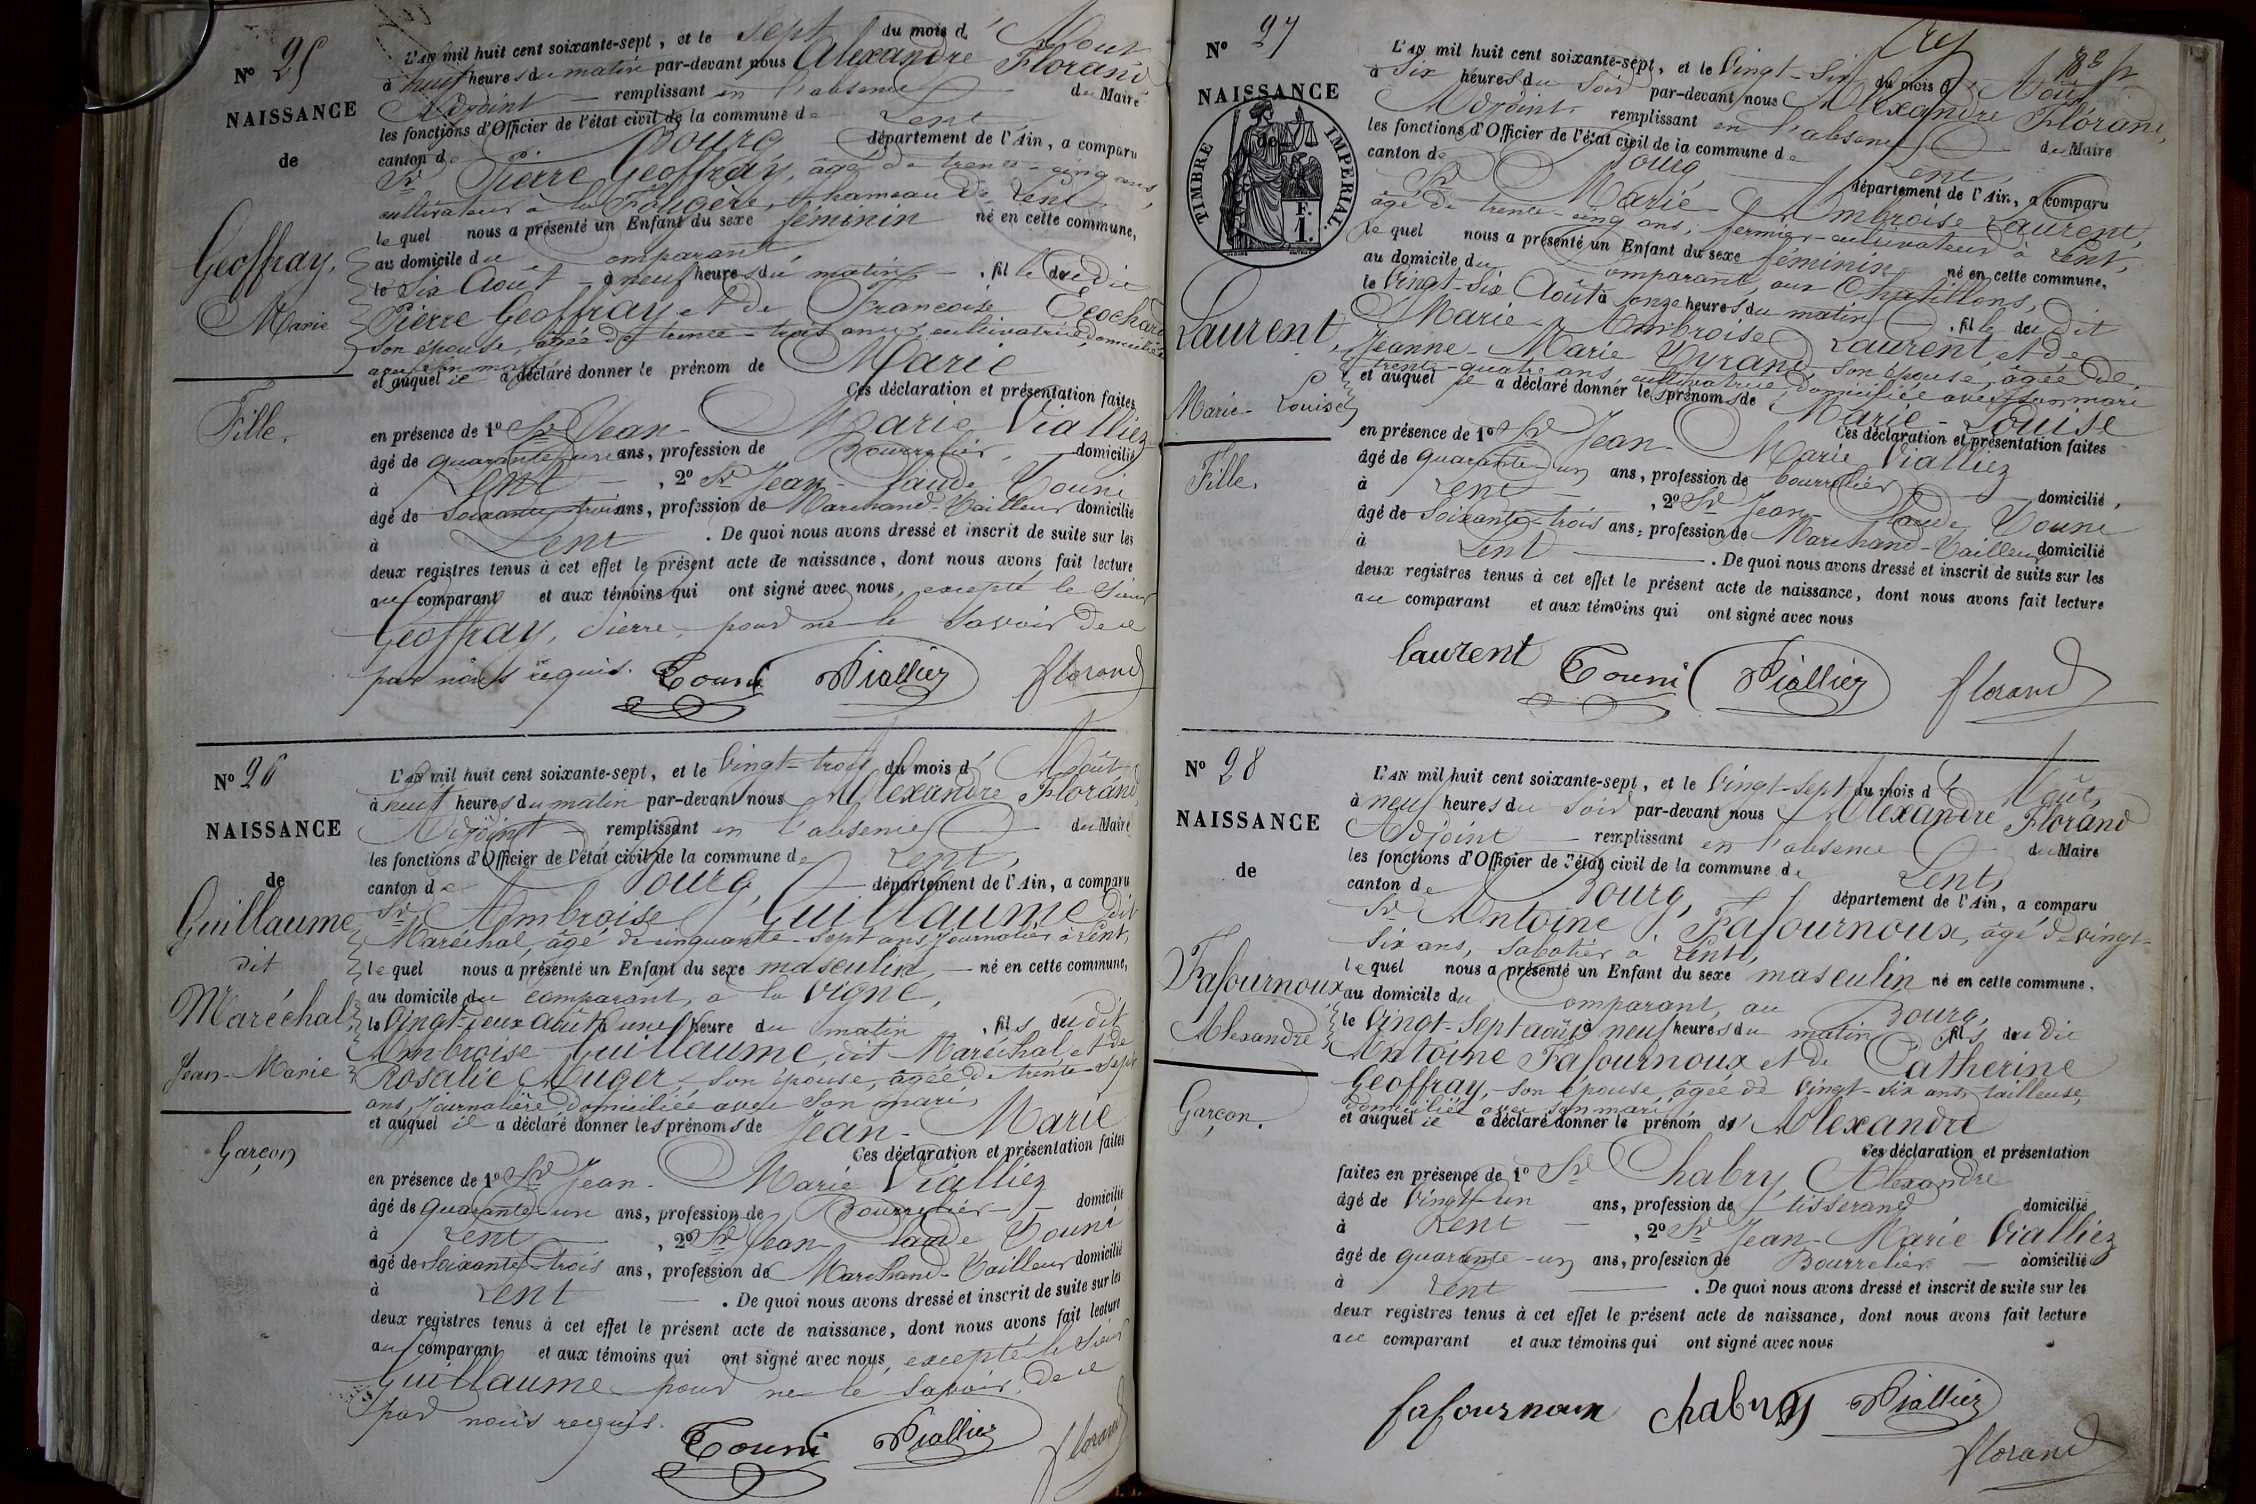 N° 25
NAISSANCE
de
Geoffray,
Marie
Fille.
L'AN mil huit cent soixante-sept, et le sept du mois d'Août
à neuf heures du matin par-devant nous Alexandre Florand
Adjoint remplissant en l'absence du Maire
les fonctions d'Officier de l'état civil de la commune de Lent,
canton de Bourg département de l'Ain, a comparu
Sr Pierre Geoffray, âgé de trente-cinq ans,
cultivateur à la Fougère, hameau de Lent,
lequel nous a présenté un Enfant du sexe féminin né en cette commune,
au domicile du Comparant,
le Six Août à neuf heures du matin, fille dudit
Pierre Geoffray et de Françoise Ecochard
son épouse, âgée de trente-trois ans, cultivatrice, domiciliée
avec son mari
et auquel il a déclaré donner le prénom de Marie
Ces déclaration et présentation faites
en présence de 1° Sr Jean-Marie Vialliez
âgé de quarante-un ans, profession de Bourrelier, domicilié
à Lent, 2° Sr Jean-Claude Touni
âgé de soixante-trois ans, profession de Marchand-Tailleur domicilié
à Lent. De quoi nous avons dressé et inscrit de suite sur les
deux registres tenus à cet effet le présent acte de naissance, dont nous avons fait lecture
au comparant et aux témoins qui ont signé avec nous, excepté le Sieur
Geoffray, Pierre, pour ne le savoir de ce
par nous requis.
Touni Vialliez Florand
N° 26
NAISSANCE
de
Guillaume
dit
Maréchal,
Jean-Marie
Garçon
L'AN mil huit cent soixante-sept, et le Vingt-trois du mois d'Août
à neuf heures du matin par-devant nous Alexandre Florand,
Adjoint remplissant en l'absence du Maire
les fonctions d'Officier de l'état civil de la commune de Lent,
canton de Bourg, département de l'Ain, a comparu
Sr Ambroise Guillaume dit
Maréchal, âgé de cinquante-sept ans, journalier à Lent,
lequel nous a présenté un Enfant du sexe masculin, né en cette commune,
au domicile du comparant, à la Vigne,
le Vingt-deux août à une heure du matin, fils dudit
Ambroise Guillaume, dit Maréchal, et de
Rosalie Auger, son épouse, âgée de trente-sept
ans, journalière, domiciliée avec son mari,
et auquel il a déclaré donner les prénoms de Jean-Marie
Ces déclaration et présentation faites
en présence de 1° Sr Jean-Marie Vialliez
âgé de quarante-un ans, profession de Bourrelier domicilié
à Lent, 2° Sr Jean-Claude Touni
âgé de soixante-trois ans, profession de Marchand-Tailleur domicilié
à Lent. De quoi nous avons dressé et inscrit de suite sur les
deux registres tenus à cet effet le présent acte de naissance, dont nous avons fait lecture
au comparant et aux témoins qui ont signé avec nous, excepté le Sieur
Guillaume pour ne le savoir, de ce
par nous requis.
Touni Vialliez Florand
N° 27
NAISSANCE
de
TIMBRE IMPERIAL.
F.
1.
Laurent,
Marie-Louise
Fille.
L'AN mil huit cent soixante-sept, et le Vingt-Six du mois d'Août
à Six heures du Soir par-devant nous Alexandre Florand,
Adjoint remplissant en l'absence du Maire
les fonctions d'Officier de l'état civil de la commune de Lent,
canton de Bourg département de l'Ain, a comparu
Sr Marie-Ambroise Laurent,
âgé de trente-cinq ans, fermier-cultivateur à Lent,
lequel nous a présenté un Enfant du sexe féminin né en cette commune,
au domicile du Comparant, aux Chatillons,
le Vingt-Six Août à onze heures du matin, fille dudit
Marie-Ambroise Laurent, et de
Jeanne-Marie Vyrand, son épouse, âgée de
trente-quatre ans, cultivatrice, domiciliée avec son mari
et auquel il a déclaré donner les prénoms de Marie-Louise
Ces déclaration et présentation faites
en présence de 1° Sr Jean-Marie Vialliez
âgé de quarante-un ans, profession de bourrelier domicilié,
à Lent, 2° Sr Jean-Claude Touni
âgé de Soixante-trois ans, profession de Marchand-Tailleur domicilié
à Lent. De quoi nous avons dressé et inscrit de suite sur les
deux registres tenus à cet effet le présent acte de naissance, dont nous avons fait lecture
au comparant et aux témoins qui ont signé avec nous
laurent Touni Vialliez Florand
N° 28
NAISSANCE
de
Fafournoux
Alexandre
Garçon.
L'AN mil huit cent soixante-sept, et le Vingt-Sept du mois d'Août,
à neuf heures du soir par-devant nous Alexandre Florand
Adjoint remplissant en l'absence du Maire
les fonctions d'Officier de l'état civil de la commune de Lent,
canton de Bourg, département de l'Ain, a comparu
Sr Antoine Fafournoux, âgé de vingt-
six ans, sabotier à Lent,
lequel nous a présenté un Enfant du sexe masculin né en cette commune.
au domicile du Comparant, au Bourg,
le Vingt-Sept août à neuf heures du matin, fils dudit
Antoine Fafournoux et de Catherine
Geoffray, son épouse, âgée de vingt-six ans, tailleuse,
domiciliée avec son mari,
et auquel il a déclaré donner le prénom d'Alexandre
Ces déclaration et présentation
faites en présence de 1° Sr Chabry, Alexandre
âgé de Vingt-un ans, profession de tisserand domicilié
à Lent, 2° Sr Jean-Marie Vialliez
âgé de quarante-un ans, profession de Bourrelier domicilié
à Lent. De quoi nous avons dressé et inscrit de suite sur les
deux registres tenus à cet effet le présent acte de naissance, dont nous avons fait lecture
au comparant et aux témoins qui ont signé avec nous
fafournoux chabry Vialliez
Florand